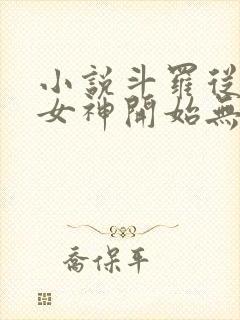 小說斗羅從
女神開始無
喬保平